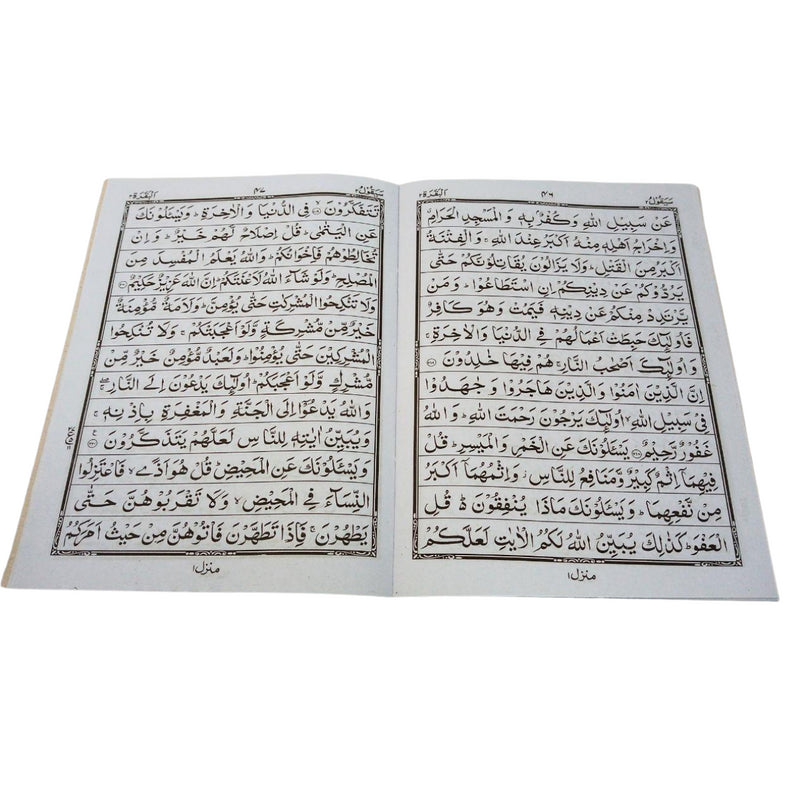 سَيَقُولُ ٢
٤٦
اَلْبَقَرَة ٢
عَنْ سَبِيْلِ اللّٰهِ وَ كُفْرٌۢ بِهٖ وَ الْمَسْجِدِ الْحَرَامِ
وَ اِخْرَاجُ اَهْلِهٖ مِنْهُ اَكْبَرُ عِنْدَ اللّٰهِ ۚ وَ الْفِتْنَةُ
اَكْبَرُ مِنَ الْقَتْلِ ؕ وَ لَا يَزَالُوْنَ يُقَاتِلُوْنَكُمْ حَتّٰى
يَرُدُّوْكُمْ عَنْ دِيْنِكُمْ اِنِ اسْتَطَاعُوْا ؕ وَ مَنْ
يَّرْتَدِدْ مِنْكُمْ عَنْ دِيْنِهٖ فَيَمُتْ وَ هُوَ كَافِرٌ
فَاُولٰٓئِكَ حَبِطَتْ اَعْمَالُهُمْ فِي الدُّنْيَا وَ الْاٰخِرَةِ ۚ
وَ اُولٰٓئِكَ اَصْحٰبُ النَّارِ ۚ هُمْ فِيْهَا خٰلِدُوْنَ ﴿۲۱۷﴾
اِنَّ الَّذِيْنَ اٰمَنُوْا وَ الَّذِيْنَ هَاجَرُوْا وَ جٰهَدُوْا
فِيْ سَبِيْلِ اللّٰهِ ۙ اُولٰٓئِكَ يَرْجُوْنَ رَحْمَتَ اللّٰهِ ؕ وَ اللّٰهُ
غَفُوْرٌ رَّحِيْمٌ ﴿۲۱۸﴾ يَسْـَٔلُوْنَكَ عَنِ الْخَمْرِ وَ الْمَيْسِرِ ؕ قُلْ
فِيْهِمَاۤ اِثْمٌ كَبِيْرٌ وَّ مَنَافِعُ لِلنَّاسِ ؗ وَ اِثْمُهُمَاۤ اَكْبَرُ
مِنْ نَّفْعِهِمَا ؕ وَ يَسْـَٔلُوْنَكَ مَاذَا يُنْفِقُوْنَ ؕ قُلِ
الْعَفْوَ ؕ كَذٰلِكَ يُبَيِّنُ اللّٰهُ لَكُمُ الْاٰيٰتِ لَعَلَّكُمْ
منزل ١
سَيَقُولُ ٢
٤٧
اَلْبَقَرَة ٢
تَتَفَكَّرُوْنَ ﴿۲۱۹﴾ فِي الدُّنْيَا وَ الْاٰخِرَةِ ؕ وَ يَسْـَٔلُوْنَكَ
عَنِ الْيَتٰمٰى ؕ قُلْ اِصْلَاحٌ لَّهُمْ خَيْرٌ ؕ وَ اِنْ
تُخَالِطُوْهُمْ فَاِخْوَانُكُمْ ؕ وَ اللّٰهُ يَعْلَمُ الْمُفْسِدَ مِنَ
الْمُصْلِحِ ؕ وَ لَوْ شَآءَ اللّٰهُ لَاَعْنَتَكُمْ ؕ اِنَّ اللّٰهَ عَزِيْزٌ حَكِيْمٌ ﴿۲۲۰﴾
وَ لَا تَنْكِحُوا الْمُشْرِكٰتِ حَتّٰى يُؤْمِنَّ ؕ وَ لَاَمَةٌ مُّؤْمِنَةٌ
خَيْرٌ مِّنْ مُّشْرِكَةٍ وَّ لَوْ اَعْجَبَتْكُمْ ۚ وَ لَا تُنْكِحُوا
الْمُشْرِكِيْنَ حَتّٰى يُؤْمِنُوْا ؕ وَ لَعَبْدٌ مُّؤْمِنٌ خَيْرٌ مِّنْ
مُّشْرِكٍ وَّ لَوْ اَعْجَبَكُمْ ؕ اُولٰٓئِكَ يَدْعُوْنَ اِلَى النَّارِ ۚ
وَ اللّٰهُ يَدْعُوْۤا اِلَى الْجَنَّةِ وَ الْمَغْفِرَةِ بِاِذْنِهٖ ۚ
وَ يُبَيِّنُ اٰيٰتِهٖ لِلنَّاسِ لَعَلَّهُمْ يَتَذَكَّرُوْنَ ﴿۲۲۱﴾
وَ يَسْـَٔلُوْنَكَ عَنِ الْمَحِيْضِ ؕ قُلْ هُوَ اَذًى ۙ فَاعْتَزِلُوا
النِّسَآءَ فِي الْمَحِيْضِ ۙ وَ لَا تَقْرَبُوْهُنَّ حَتّٰى
يَطْهُرْنَ ۚ فَاِذَا تَطَهَّرْنَ فَاْتُوْهُنَّ مِنْ حَيْثُ اَمَرَكُمُ
منزل ١